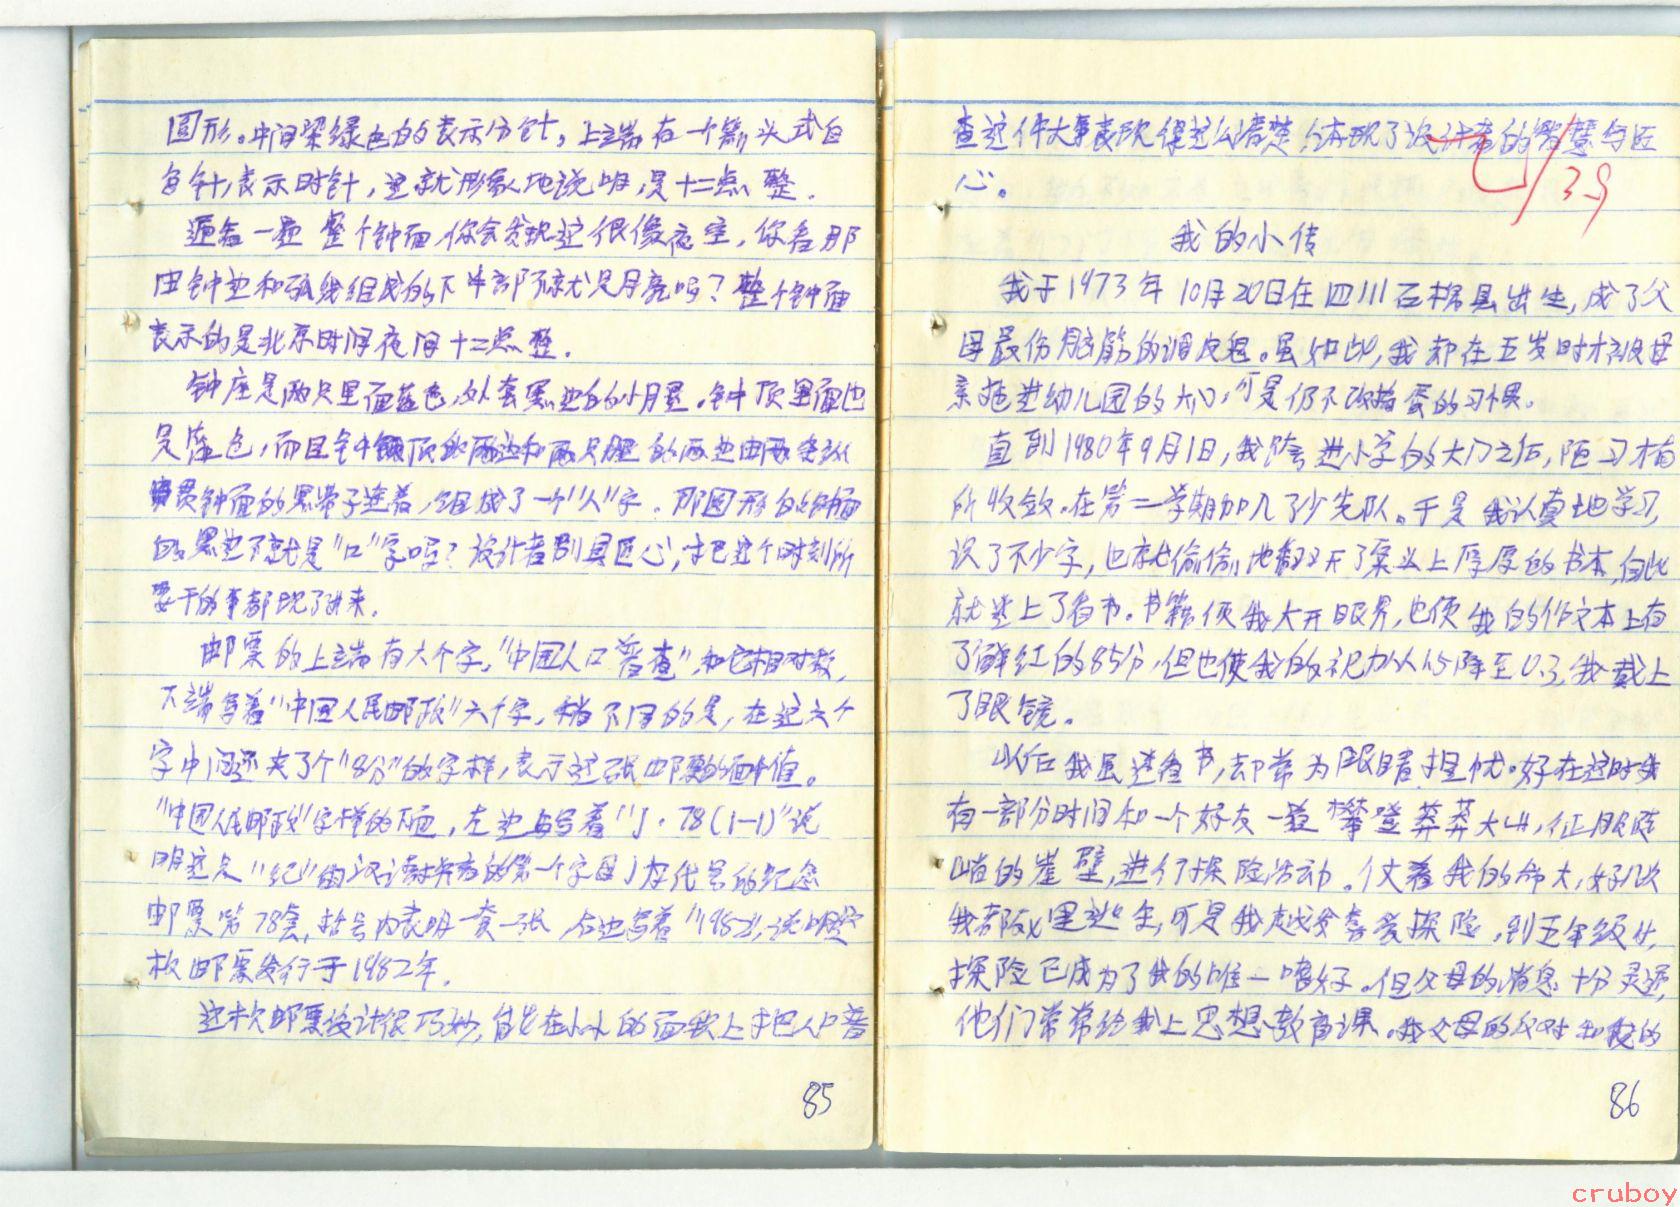 圆形。中间染绿色的表示分针。上端有一个箭头式白
色针表示时针,这就形象地说明是十二点整。
遍看一遍整个钟面,你会发现这很像夜空,你看那
由钟边和弧线组成的下半部不就是月亮吗?整个钟面
表示的是北京时间夜间十二点整。
钟座是两只里面蓝色,外套黑边的小月置。钟顶里面也
是蓝色,而且钟顶的两边和两只腿的两边由两条纵
贯钟面的黑带子连着,组成了一个“人”字。那圆形的钟面
的黑边不就是“口”字吗?设计者别具匠心,才把这个时刻所
要干的事都现了出来。
邮票的上端有六个字,“中国人口普查”,和它相对教,
下端写着“中国人民邮政”六个字,稍不同的是,在这六个
字中间还夹了个“8分”的字样,表示这张邮票的面值。
“中国人民邮政”字样的下面,左边写着“J·78(1—1)”说
明这是“纪”的汉语拼音的第一个字母J为代号的纪念
邮票第78套,括号内表明一套一张,右边写着“1982”,说明这
枚邮票发行于1982年。
这枚邮票设计很巧妙,能在小小的面积上把人口普
85
查这件大事表现得这么清楚,体现了设计者的智慧与匠
心。
优/39
我的小传
我于1973年10月20日在四川石棉县出生,成了父
母最伤脑筋的调皮蛋。虽如此,我却在五岁时才被母
亲拖进幼儿园的大门,可是仍不改捣蛋的习惯。
直到1980年9月1日,我跨进小学的大门之后,陋习才有
所收敛。在第二学期加入了少先队。于是我认真地学习,
识了不少字,也就偷偷地翻开了桌上厚厚的书本,自此
就迷上了看书。书籍使我大开眼界,也使我的作文本上有
了鲜红的85分,但也使我的视力从1.5降至0.3,我戴上
了眼镜。
以后我虽迷看书,却常为眼睛担忧。好在这时我
有一部分时间和一个好友一道攀登莽莽大山,征服陡
峭的崖壁,进行探险活动。仗着我的命大,好几次
我都死里逃生,可是我越发喜爱探险,到五年级时,
探险已成为了我的唯一嗜好。但父母的消息十分灵通,
他们常常给我上思想教育课。我父母的反对和我的
86
cruboy